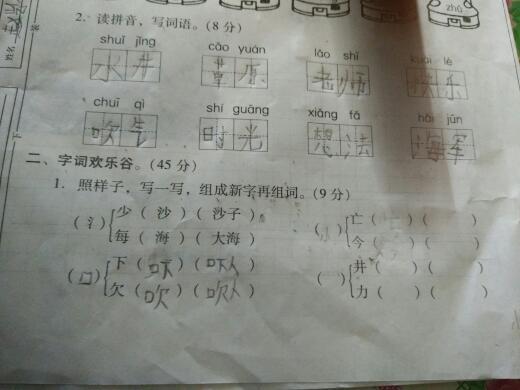 zhǔ
姓名
2. 读拼音，写词语。（8 分）
shuǐ jǐng cǎo yuán lǎo shī kuài lè
水井 草原 老师 快乐
chuī qì shí guāng xiǎng fǎ hǎi jūn
吹气 时光 想法 海军
二、字词欢乐谷。（45 分）
1. 照样子，写一写，组成新字再组词。（9 分）
（氵） 少（ 沙 ）（ 沙子 ） 亡（ ）（ ）
每（ 海 ）（ 大海 ） 今（ ）（ ）
（口） 下（ 吓 ）（ 吓人 ） 井（ ）（ ）
欠（ 吹 ）（ 吹人 ） 力（ ）（ ）